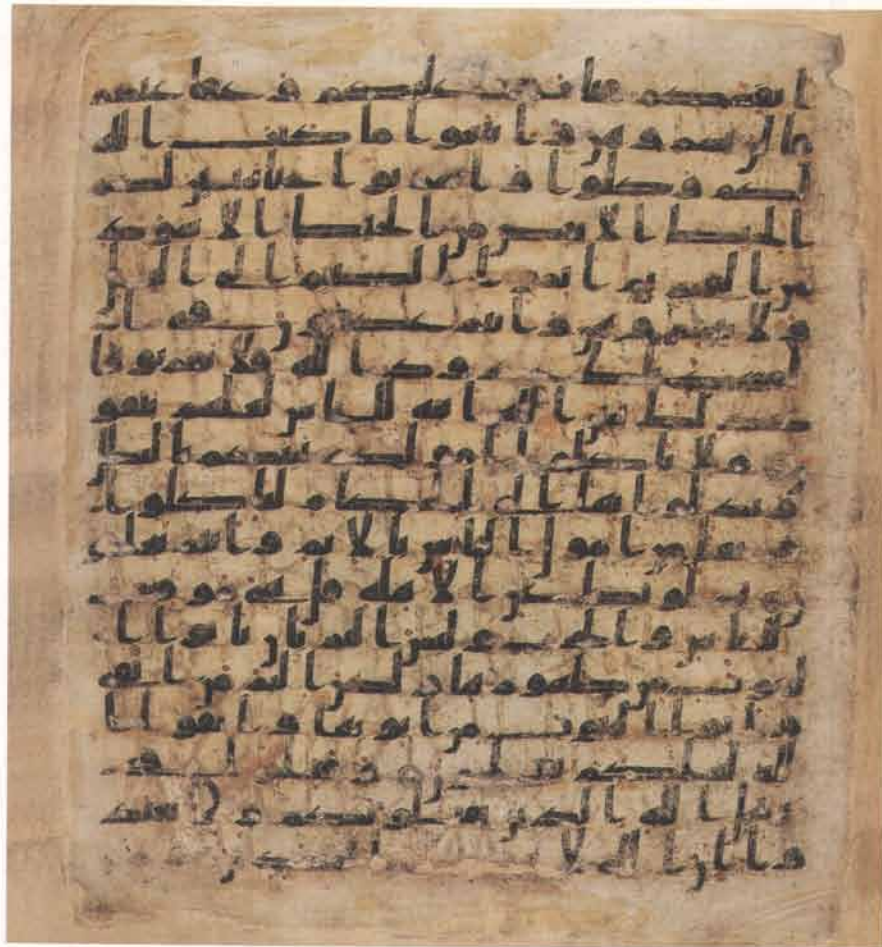 انفسكم فتاب عليكم وعفا عنكم
فالن بشروهن وابتغوا ما كتب الله
لكم وكلوا واشربوا حتى يتبين لكم
الخيط الابيض من الخيط الاسود
من الفجر ثم اتموا الصيام الى اليل
ولا تبشروهن وانتم عكفون في ا
لمسجد تلك حدود الله فلا تقربوها
كذلك يبين الله ايته للناس لعلهم يتقو
ن ولا تاكلوا امولكم بينكم بالبطل
وتدلوا بها الى الحكام لتاكلوا
فريقا من امول الناس بالاثم وانتم تعلمو
ن يسلونك عن الاهلة قل هي موقيت
للناس والحج وليس البر بان تاتوا ا
لبيوت من ظهورها ولكن البر من اتقى
واتوا البيوت من ابوبها واتقوا ا
لله لعلكم تفلحون وقتلوا في
سبيل الله الذين يقتلونكم ولا تعتد
وا ان الله لا يحب المعتدين